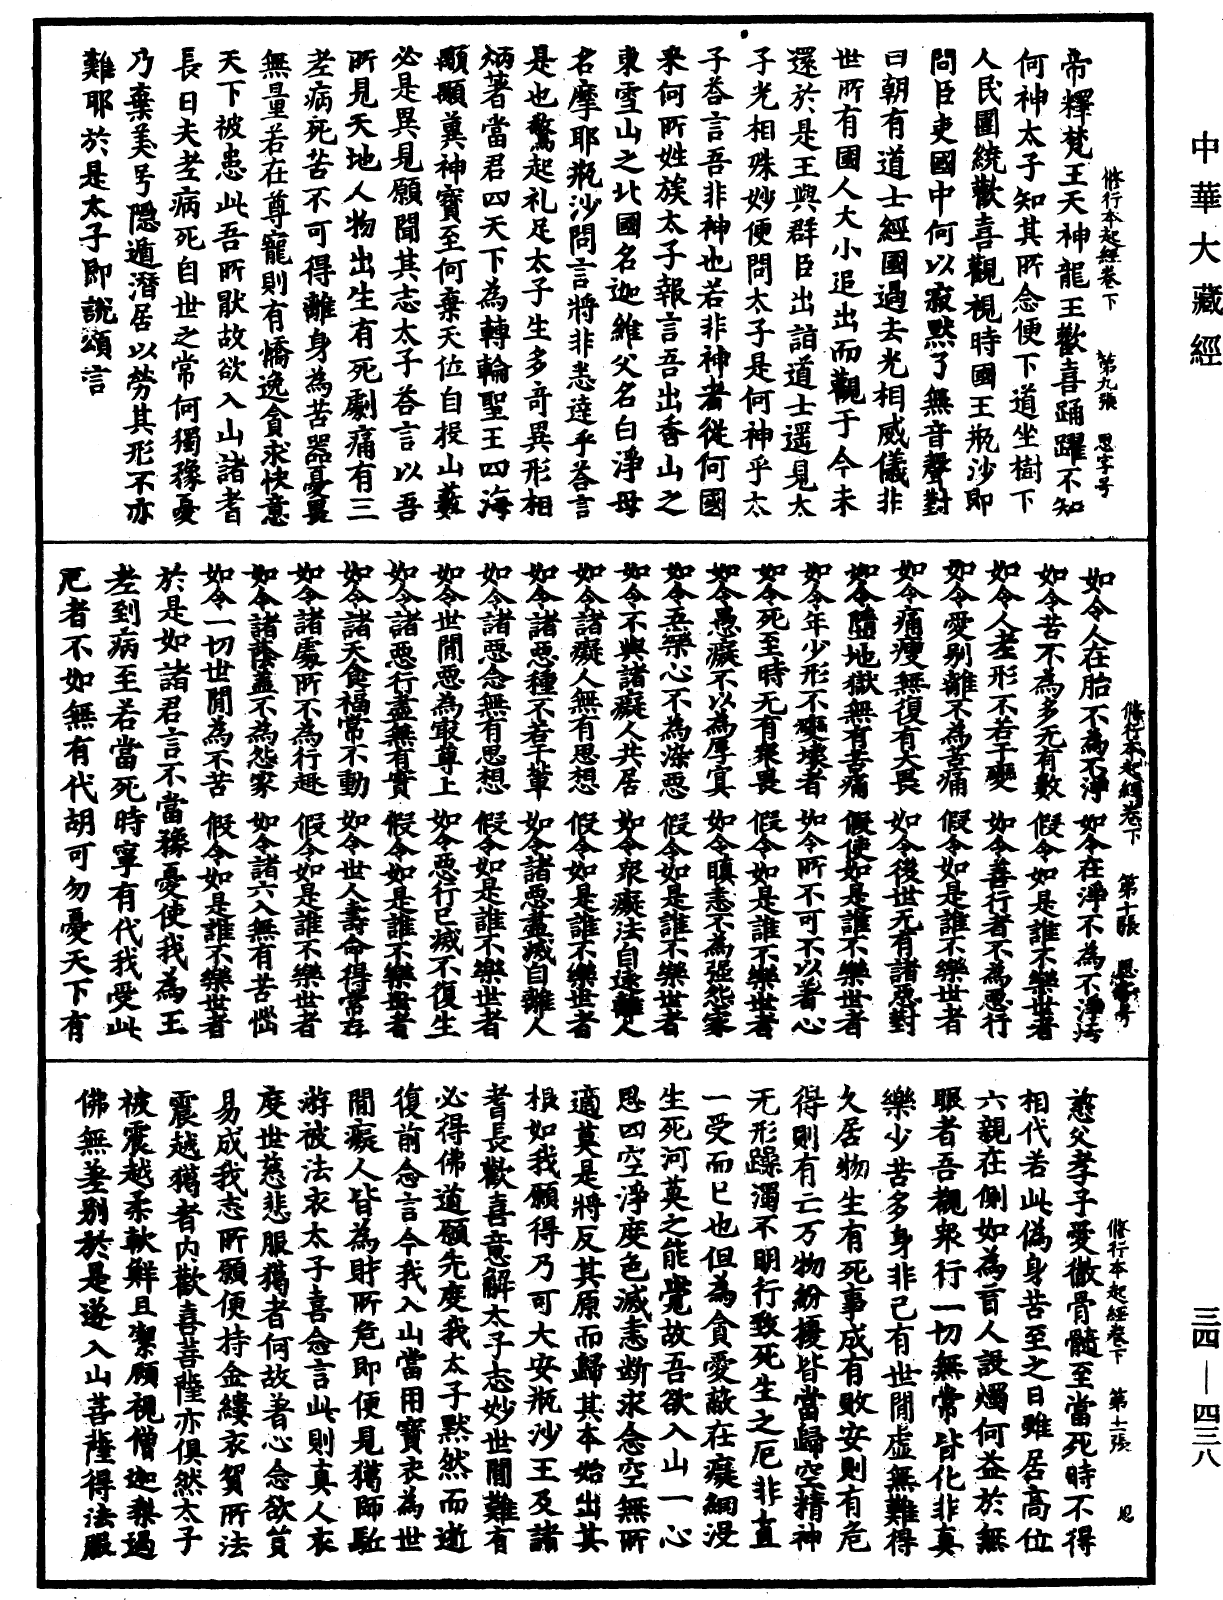 中華大藏經
修行本起經卷下　第九張　恩字号
帝釋梵王天神龍王歡喜踊躍不知
何神太子知其所念便下道坐樹下
人民圍繞歡喜觀視時國王瓶沙即
問臣吏國中何以寂默了無音聲對
曰朝有道士經國過去光相威儀非
世所有國人大小追出而觀于今未
還於是王與群臣出詣道士遥見太
子光相殊妙便問太子是何神乎太
子荅言吾非神也若非神者從何國
来何所姓族太子報言吾出香山之
東雪山之北國名迦維父名白淨母
名摩耶瓶沙問言將非悉達乎荅言
是也驚起礼足太子生多奇異形相
炳著當君四天下為轉輪聖王四海
顒顒冀神寶至何棄天位自投山藪
必是異見願聞其志太子荅言以吾
所見天地人物出生有死劇痛有三
老病死苦不可得離身為苦器憂畏
無量若在尊寵則有憍逸貪求快意
天下被患此吾所猒故欲入山諸耆
長曰夫老病死自世之常何獨豫憂
乃棄美号隱遁潛居以勞其形不亦
難耶於是太子即說頌言
修行本起經卷下　第十張　恩字号
如令人在胎不為不淨　如令在淨不為不淨汚
如令苦不為多无有數　假令如是誰不樂世者
如令人老形不若干變　如令善行者不為惡行
如令愛别離不為苦痛　假令如是誰不樂世者
如令痛瘦無復有大畏　如令後世无有諸惡對
如令墮地獄無有苦痛　假使如是誰不樂世者
如令年少形不變壞者　如令所不可不以著心
如令死至時无有衆畏　假令如是誰不樂世者
如令愚癡不以為厚冥　如令瞋恚不為强怨家
如令五樂心不為染惡　假令如是誰不樂世者
如令不與諸癡人共居　如令衆癡法自遠離人
如令諸癡人無有思想　假令如是誰不樂世者
如令諸惡種不若干輩　如令諸惡盡滅自離人
如令諸惡念無有思想　假令如是誰不樂世者
如令世閒惡為寂尊上　如令惡行已滅不復生
如令諸惡行盡無有實　假令如是誰不樂世者
如令諸天食福常不動　如令世人壽命得常存
如令諸處所不為行趣　假令如是誰不樂世者
如令諸蔭蓋不為怨家　如令諸六入無有苦惱
如令一切世閒為不苦　假令如是誰不樂世者
於是如諸君言不當豫憂使我為王
老到病至若當死時寧有代我受此
厄者不如無有代胡可勿憂天下有
修行本起經卷下　第十一張　恩
慈父孝子愛徹骨髓至當死時不得
相代若此偽身苦至之日雖居高位
六親在側如為盲人設燭何益於無
眼者吾觀衆行一切無常皆化非真
樂少苦多身非己有世閒虛無難得
久居物生有死事成有敗安則有危
得則有亡万物紛擾皆當歸空精神
无形躁濁不明行致死生之厄非直
一受而已也但為貪愛蔽在癡網没
生死河莫之能覺故吾欲入山一心
思四空淨度色滅恚断求念空無所
適莫是將反其原而歸其本始出其
根如我願得乃可大安瓶沙王及諸
耆長歡喜意解太子志妙世閒難有
必得佛道願先度我太子默然而逝
復前念言今我入山當用寶衣為世
閒癡人皆為財所危即便見獦師馳
游被法衣太子喜念言此則真人衣
度世慈悲服獦者何故著心念欲貿
易成我志所願便持金縷衣貿所法
震越獦者内歡喜菩薩亦俱然太子
被震越柔軟鮮且潔顧視僧迦梨過
佛無差别於是遂入山菩薩得法服
三四—四三八